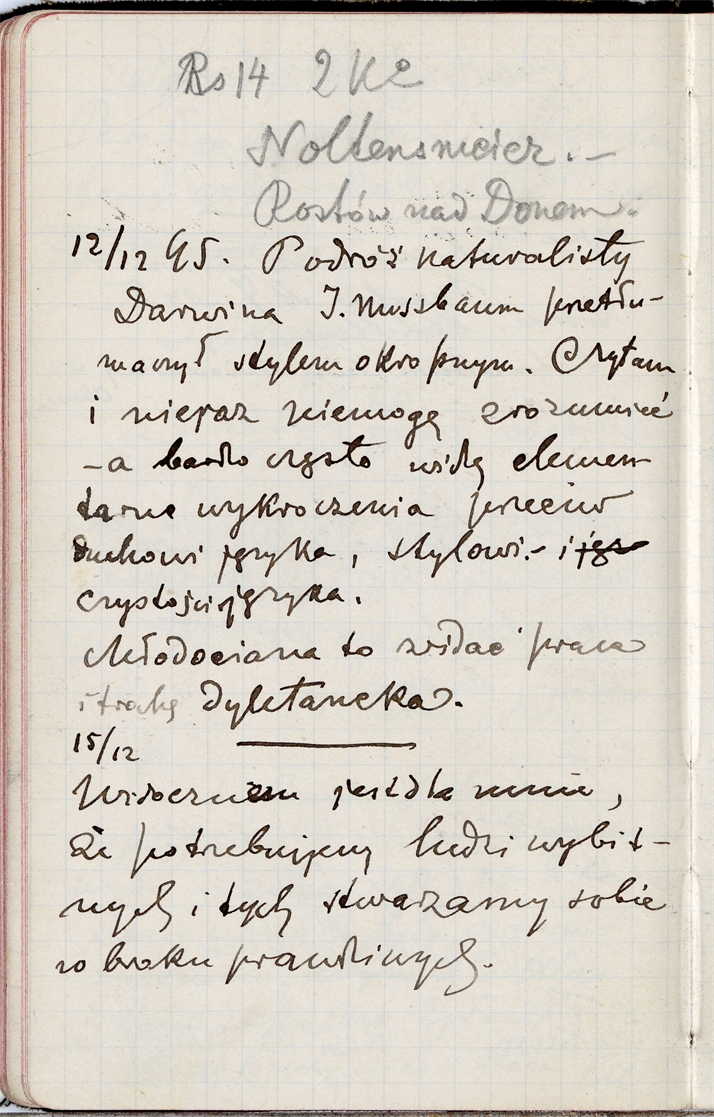 Rs 14 2 K2
Noltensmeier. –
Rostów nad Donem.
12/12 95. Podróż naturalisty
Darwina J. Nussbaum przetłu-
maczył stylem okropnym. Czytam
i nieraz niemogę zrozumieć
– a bardzo często widzę elemen-
tarne wykroczenia przeciw
duchowi języka, stylowi. – i języ
czystości języka.
Młodociana to widać praca
i trochę dyletancka.
15/12
Widocznem jest dla mnie,
że potrzebujemy ludzi wybit-
nych i tych stwarzamy sobie
w braku prawdziwych.